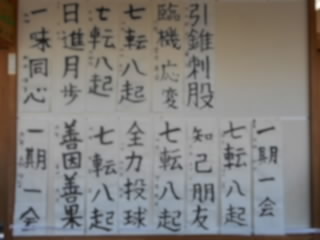 引錐刺股
臨機応変
七転八起
七転八起
日進月歩
一味同心
一期一会
七転八起
知己朋友
七転八起
全力投球
七転八起
善因善果
一期一会